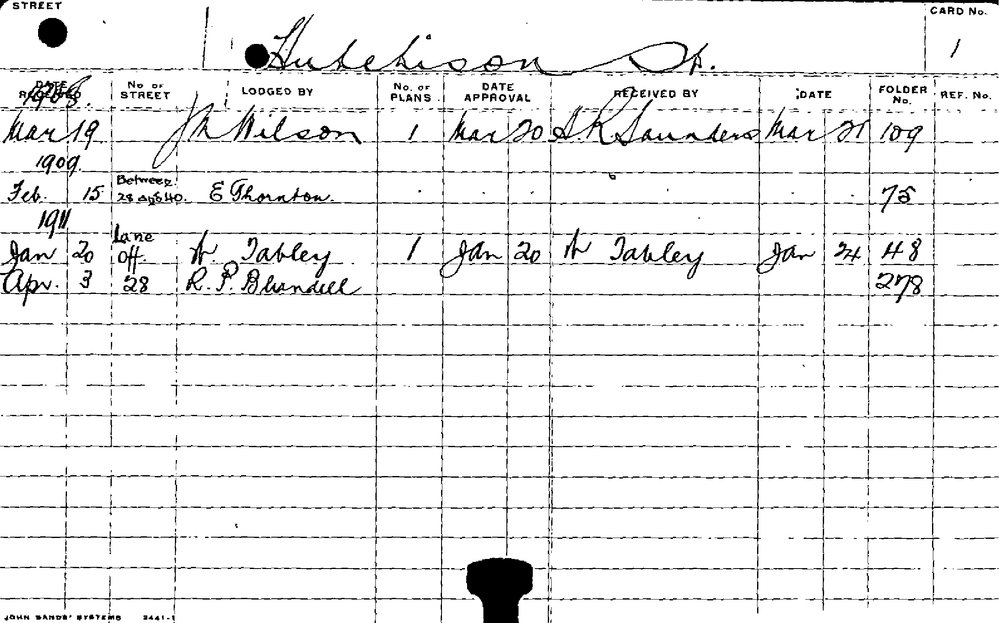 STREET
CARD No.
Hutchison St.
1
DATE No OF STREET LODGED BY No. OF PLANS DATE APPROVAL RECEIVED BY DATE FOLDER No. REF. No.
1908.
Mar 19 J M Wilson 1 Mar 20 Saunders Mar 21 109
1909.
Feb. 15 Between 28 and 40. E Thornton. 75
1911
Jan 20 Lane off. Tabley 1 Jan 20 Tabley Jan 24 48
Apr. 3 28 R. P. Blundell 278
JOHN SANDS' SYSTEMS 2441-1